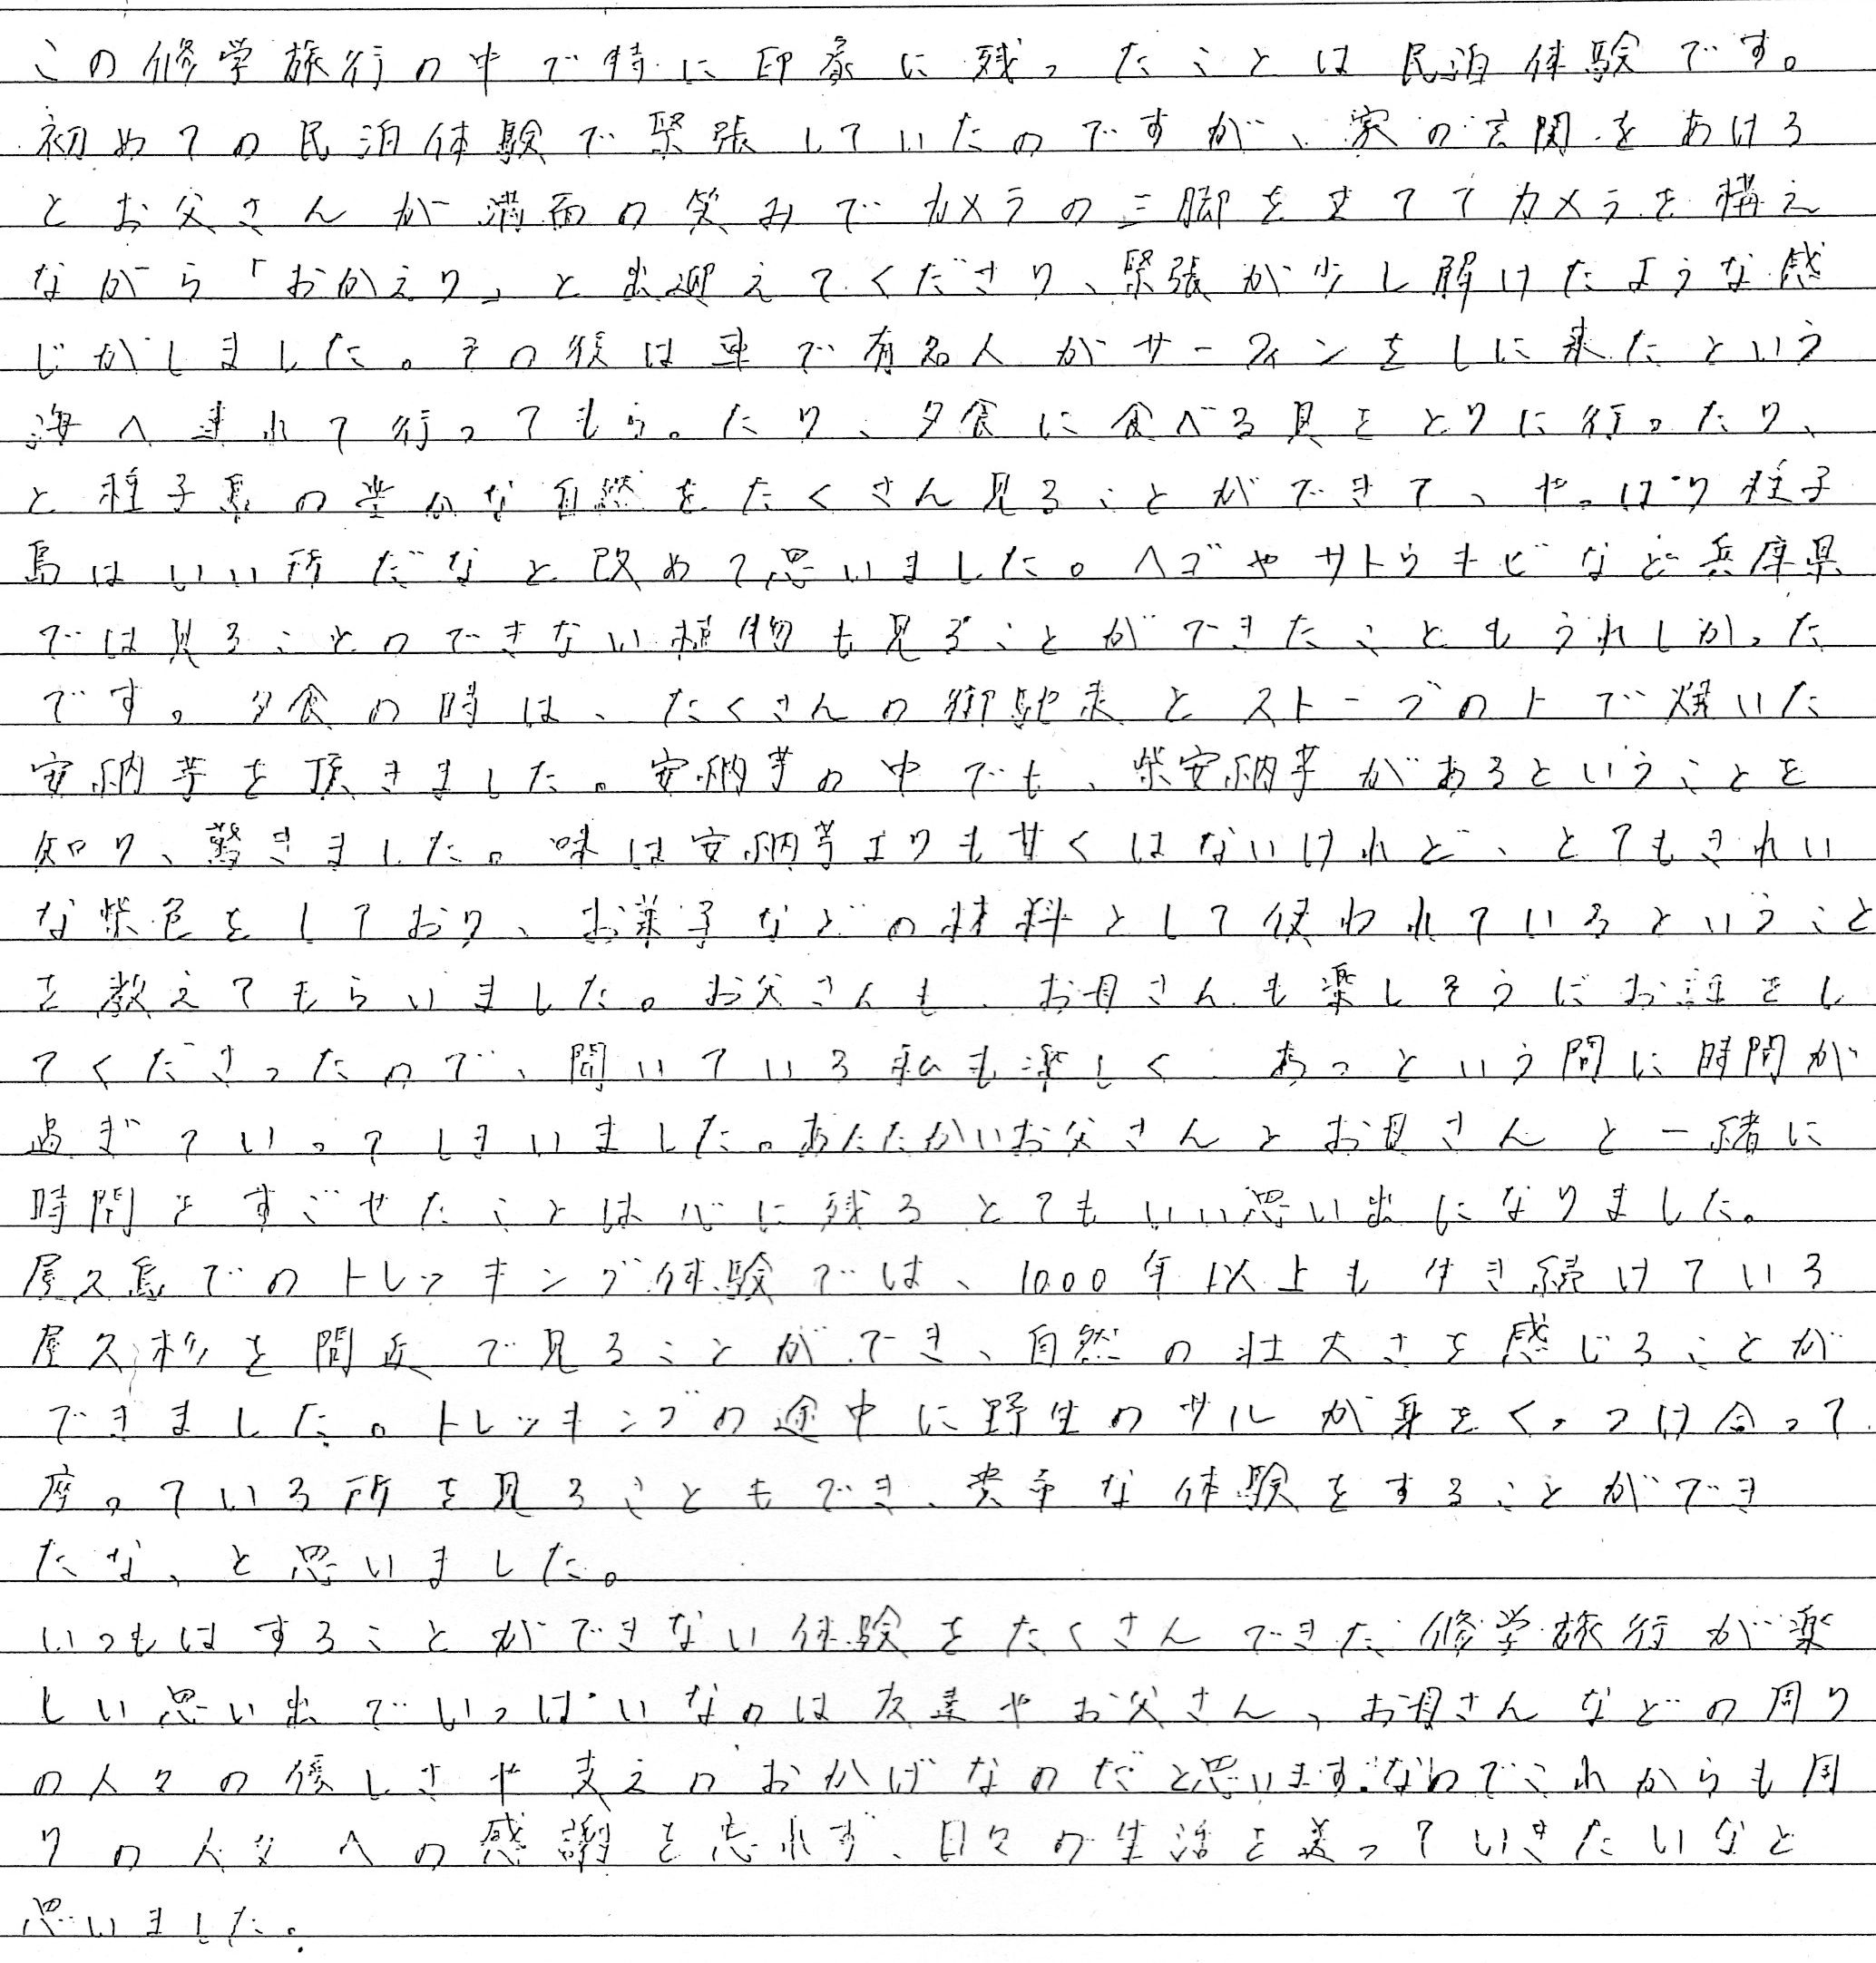 この修学旅行の中で特に印象に残ったことは民泊体験です。
初めての民泊体験で緊張していたのですが、家の玄関をあける
とお父さんが満面の笑みでカメラの三脚を立ててカメラを構え
ながら「おかえり」と出迎えてくださり、緊張が少し解けたような感
じがしました。その後は車で有名人がサーフィンをしに来たという
海へ連れて行ってもらったり、夕食に食べる貝をとりに行ったり、
と種子島の豊かな自然をたくさん見ることができて、やっぱり種子
島はいい所だなと改めて思いました。ヘゴやサトウキビなど兵庫県
では見ることのできない植物も見ることができたこともうれしかった
です。夕食の時は、たくさんの御馳走とストーブの上で焼いた
安納芋を頂きました。安納芋の中でも、紫安納芋があるということを
知り、驚きました。味は安納芋よりも甘くはないけれど、とてもきれい
な紫色をしており、お菓子などの材料として使われているということ
を教えてもらいました。お父さんも、お母さんも楽しそうにお話をし
てくださったので、聞いている私も楽しく、あっという間に時間が
過ぎていってしまいました。あたたかいお父さんとお母さんと一緒に
時間をすごせたことは心に残るとてもいい思い出になりました。
屋久島でのトレッキング体験では、1000年以上も生き続けている
屋久杉を間近で見ることができ、自然の壮大さを感じることが
できました。トレッキングの途中に野生のサルが身をくっつけ合って
座っている所を見ることもでき、貴重な体験をすることができ
たな、と思いました。
いつもはすることができない体験をたくさんできた修学旅行が楽
しい思い出でいっぱいなのは友達やお父さん、お母さんなどの周り
の人々の優しさや支えのおかげなのだと思います。なのでこれからも周
りの人々への感謝を忘れず、日々の生活を送っていきたいなと
思いました。